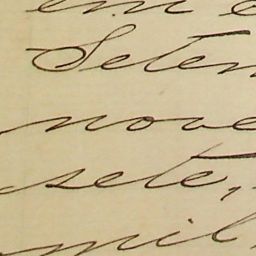 em e
Setem
nove
sete,
mil